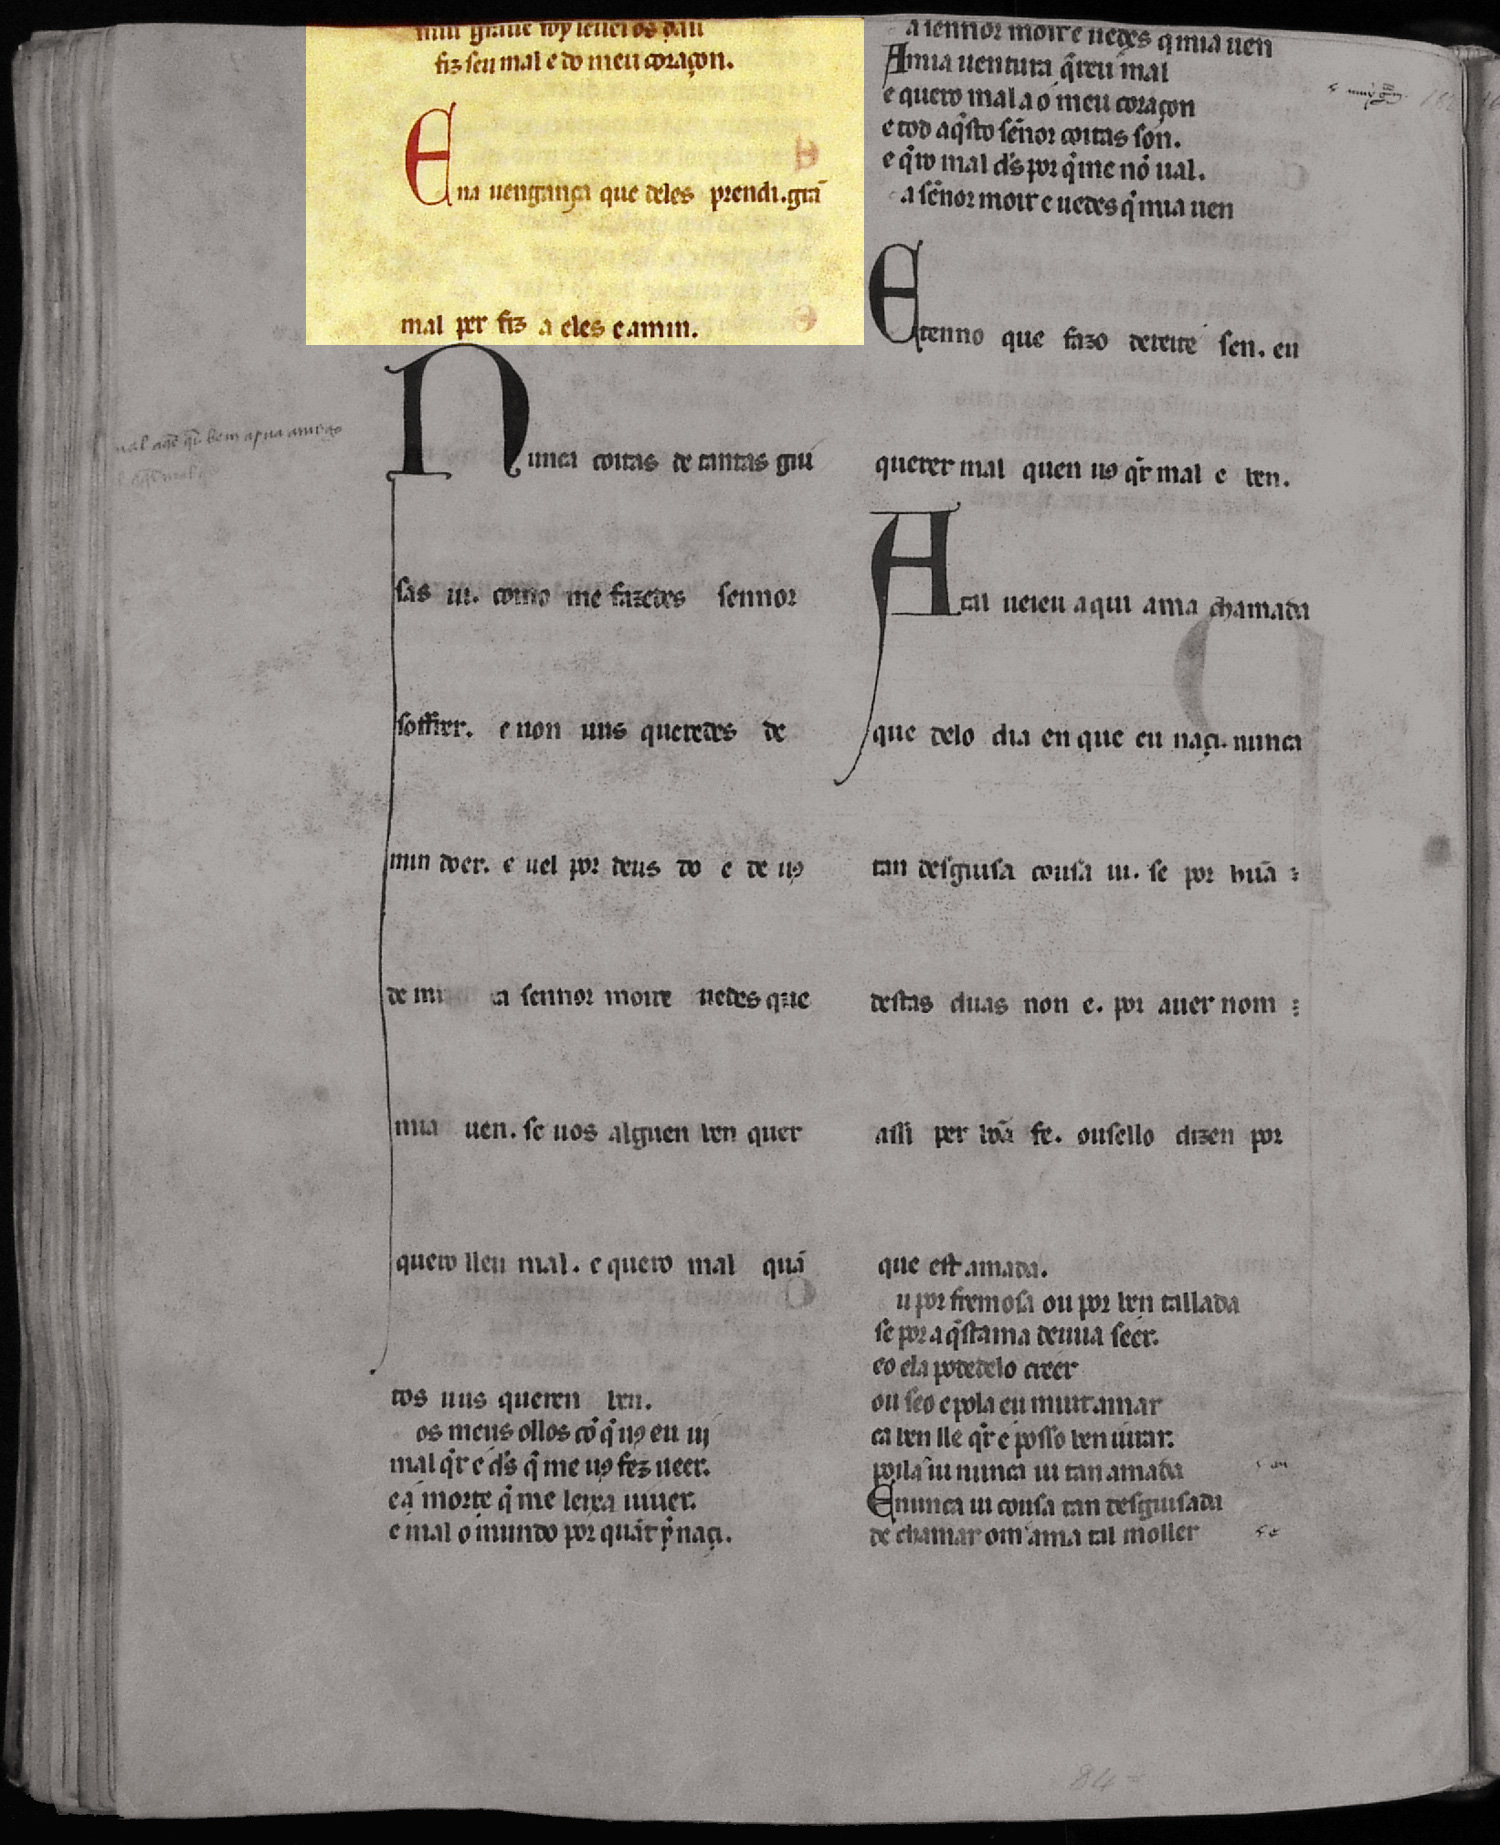 fiz seu mal e do meu coraçon.
Ena uengança que deles prendi. grã
mal per fiz a eles e amin.
Nunca coitas de tantas gui
sas ui. como me fazedes sennor
soffrer. e non uus queredes de
min doer. e uel por deus do e de uꝯ
de mi ca sennor moire uedes que
mia uen. se uos alguen ben quer
quero lleu mal. e quero mal quã
tos uus queren ben.
os meus ollos cõ q̃ uꝯ eu ui
mal q̃r e d's q̃ me uꝯ fez ueer.
e á morte q̃ me leixa uiuer.
e mal o mundo por quãt ẏ naçi.
a sennor moir e uedes q mia uen
Amia uentura q̃reu mal
e quero mal a o meu coraçon
e tod aq̃sto sẽnor coitas son.
e q̃ro mal d's por q̃ me nõ ual.
a sẽnor moir e uedes q̃ mia uen
E tenno que fazo dereite sen. eu
querer mal quen uꝯ q̃r mal e ben.
Atal ueieu aqui ama chamada
que delo dia en que eu naçi. nunca
tan desguisa cousa ui. se por hũa :
destas duas non e. por auer nom :
assi per bõa fe. ou sello dizen por
que est amada.
u por fremosa ou por ben tallada
se por aq̃stama deuua seer.
e o ela podedelo creer
ou seo e pola eu muit amar
ca ben lle q̃r e posso ben iurar.
poila ui nunca ui tan amada
E nunca ui cousa tan desguisada
de chamar om ama tal moller
84